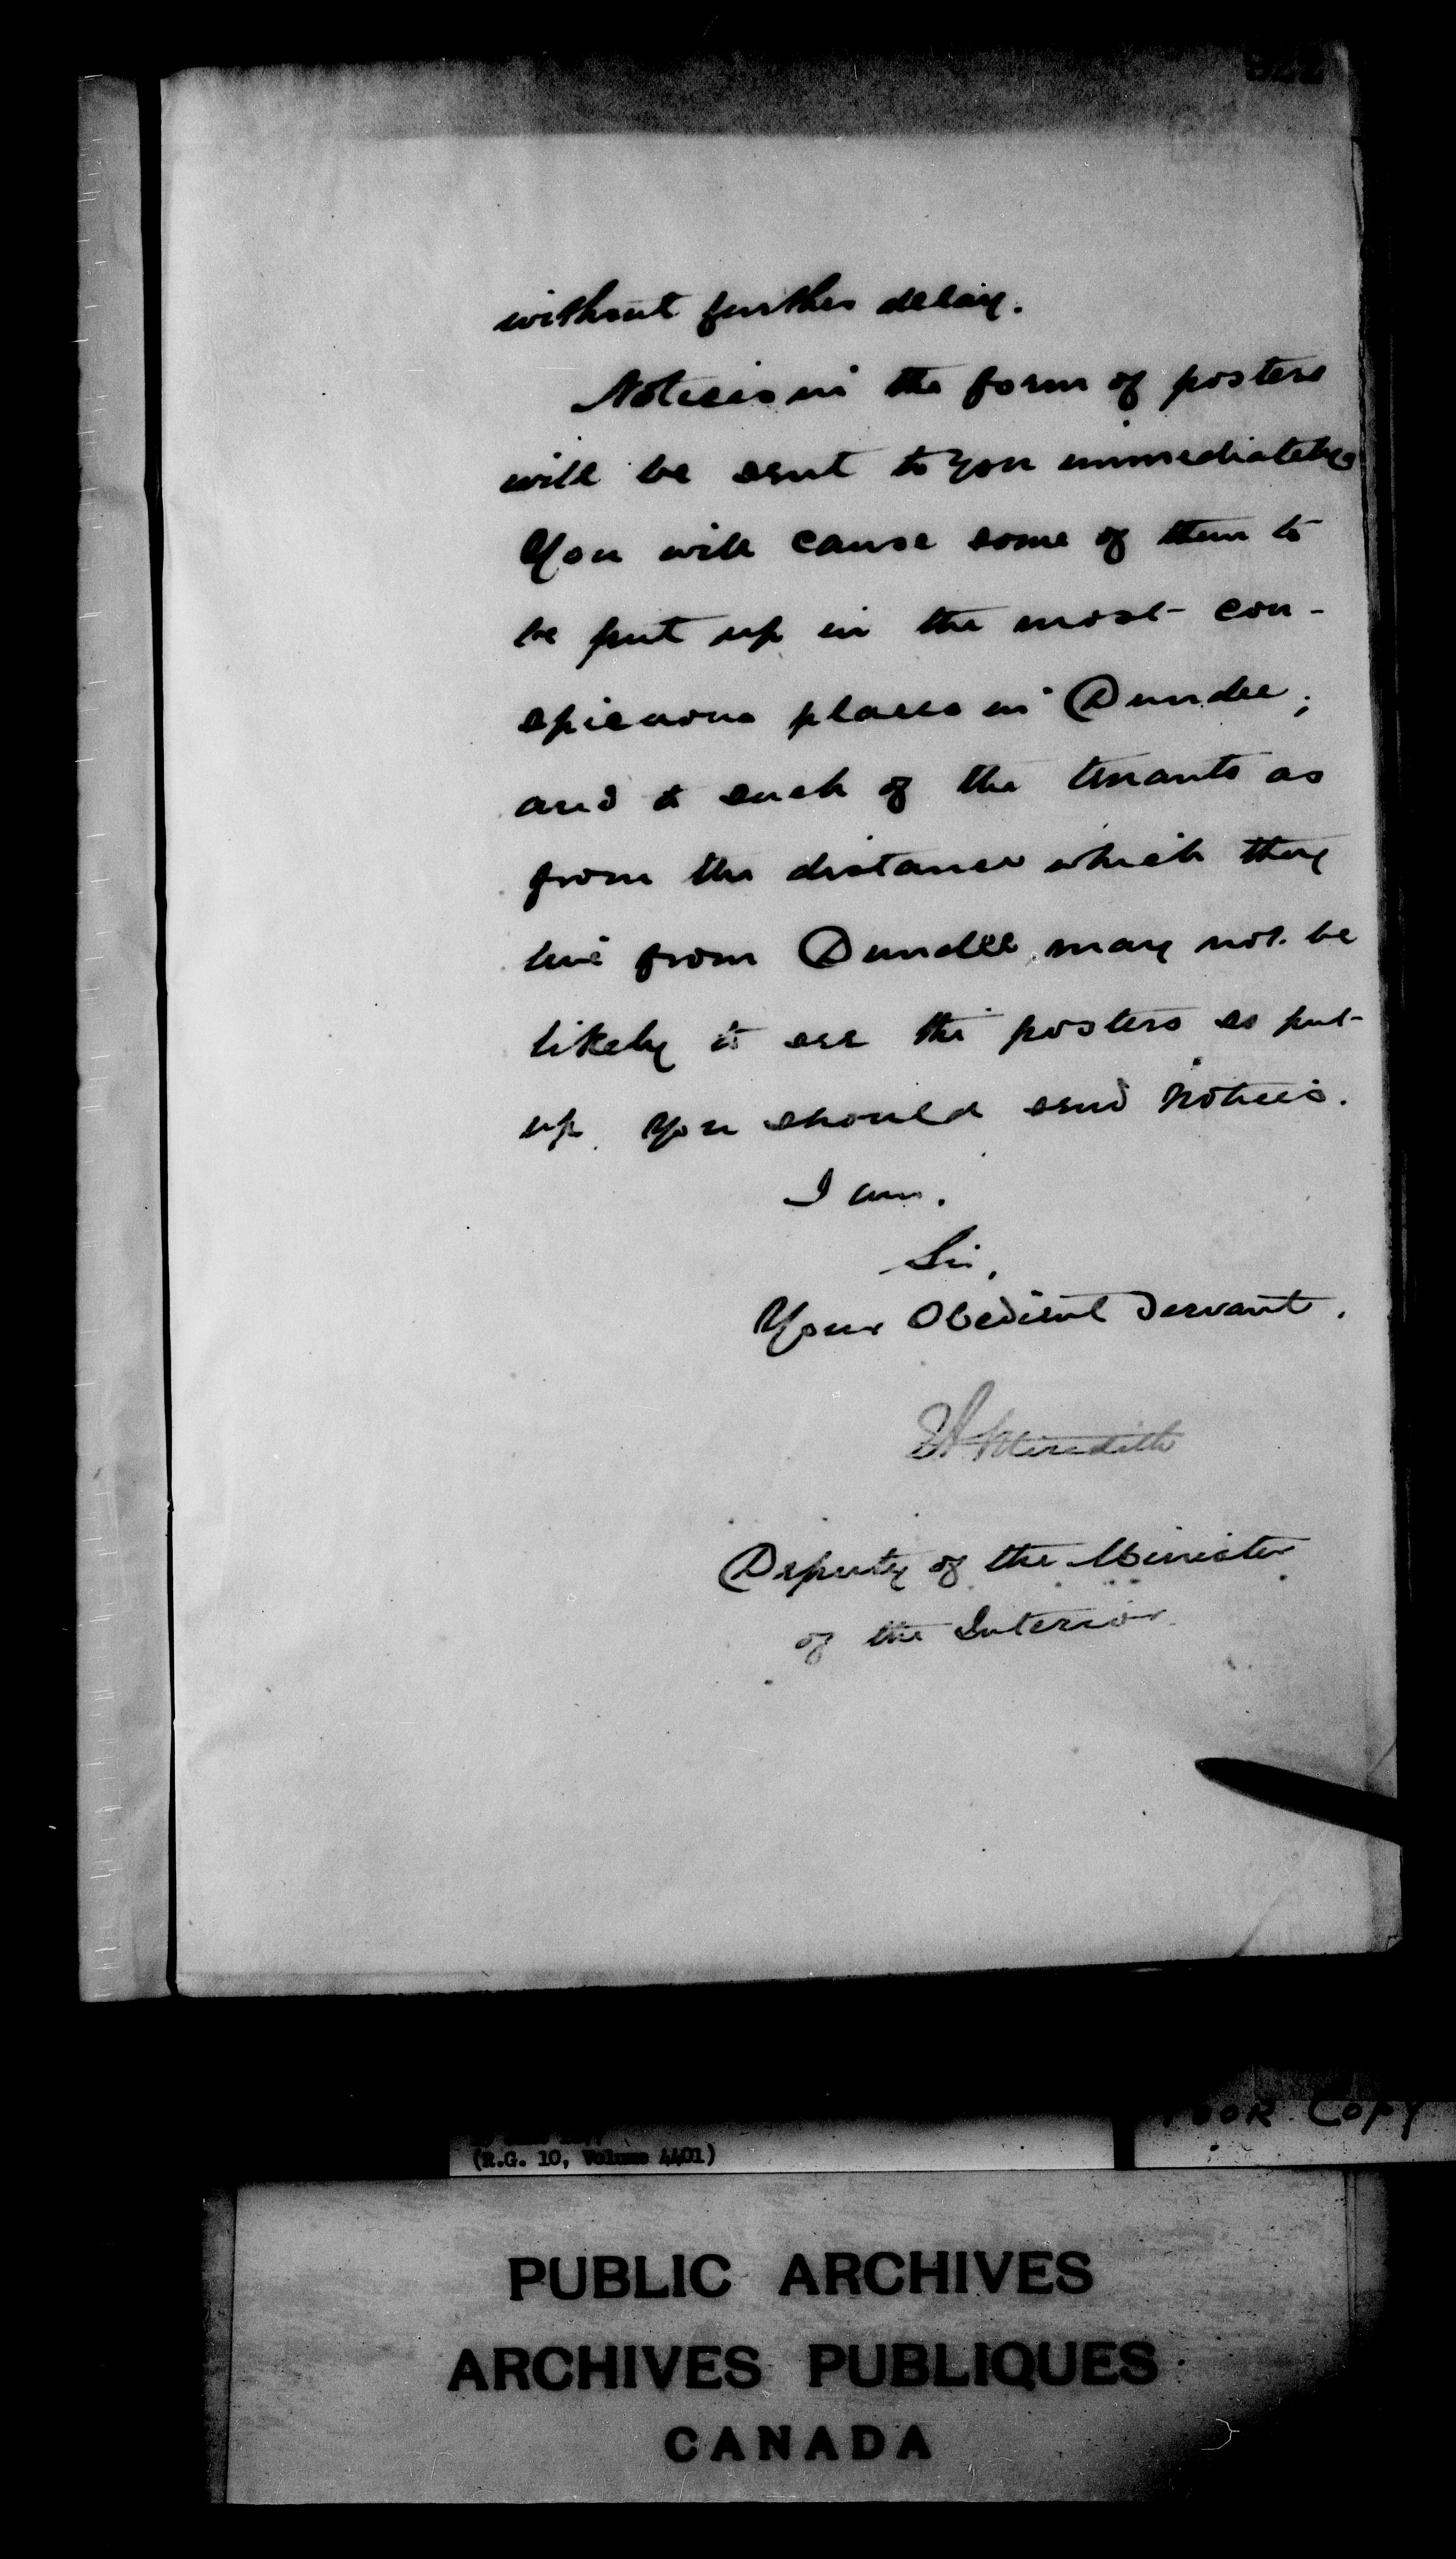 without further delay.
Notices in the form of posters
will be sent to you immediately
You will cause some of them to
be put up in the most con-
spicuous places in Dundee;
and to such of the tenants as
from the distance which they
live from Dundee, may not be
likely to see the posters so put
up you should send notices.
I am.
Sir,
Your Obedient Servant.
Meredith
Deputy of the Minister
of the Interior
(R.G. 10, Volume 4401)
Copy
PUBLIC ARCHIVES
ARCHIVES PUBLIQUES
CANADA